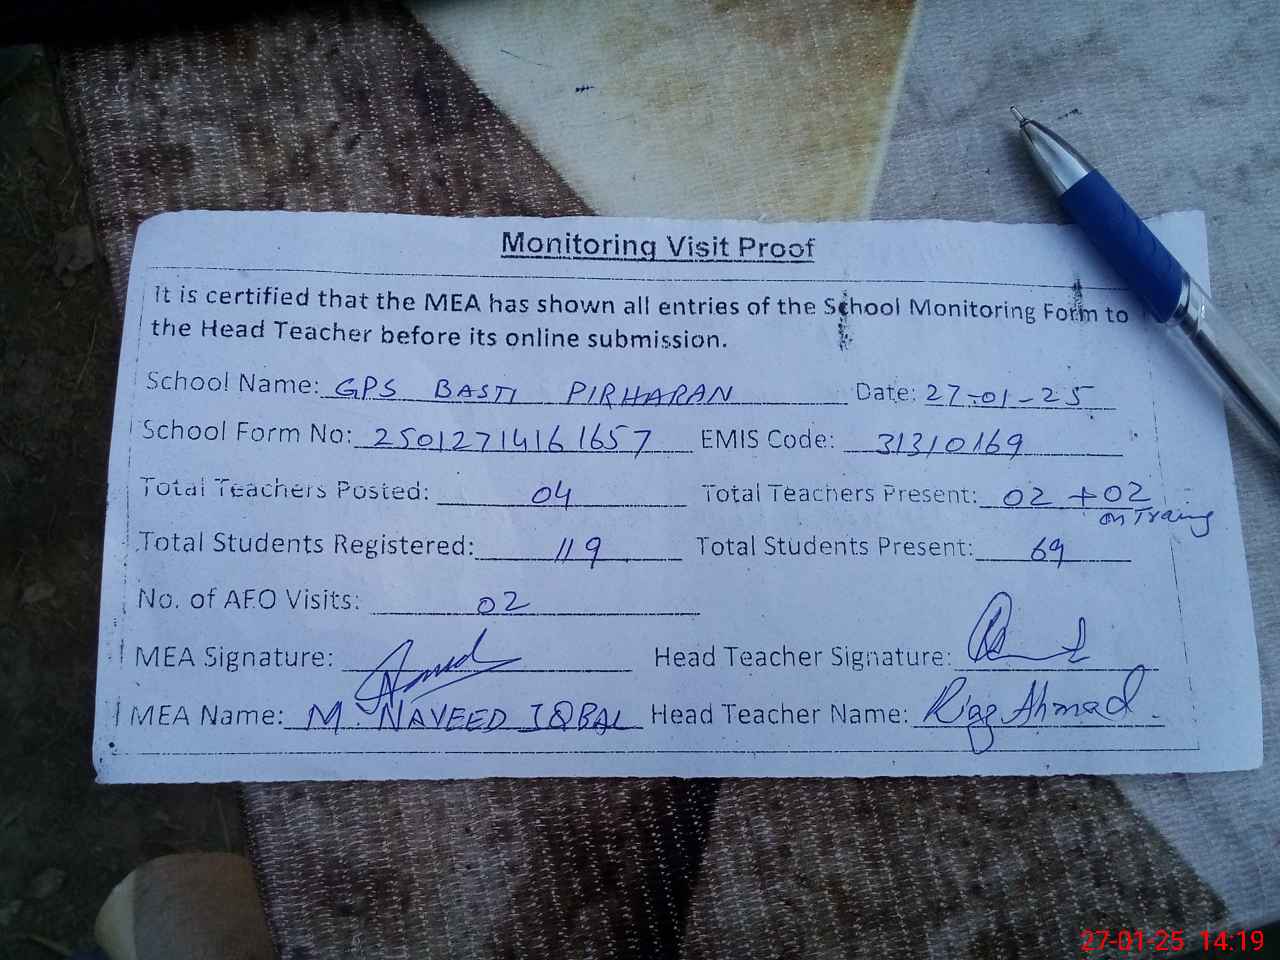 Monitoring Visit Proof
It is certified that the MEA has shown all entries of the School Monitoring Form to
the Head Teacher before its online submission.
School Name: GPS BASTI PIRHARAN Date: 27-01-25
School Form No: 25012714161657 EMIS Code: 31310169
Total Teachers Posted: 04 Total Teachers Present: 02 +02
on Traing
Total Students Registered: 119 Total Students Present: 69
No. of AEO Visits: 02
MEA Signature: Head Teacher Signature:
MEA Name: M. NAVEED IQBAL Head Teacher Name: Ahmad.
27-01-25 14:19